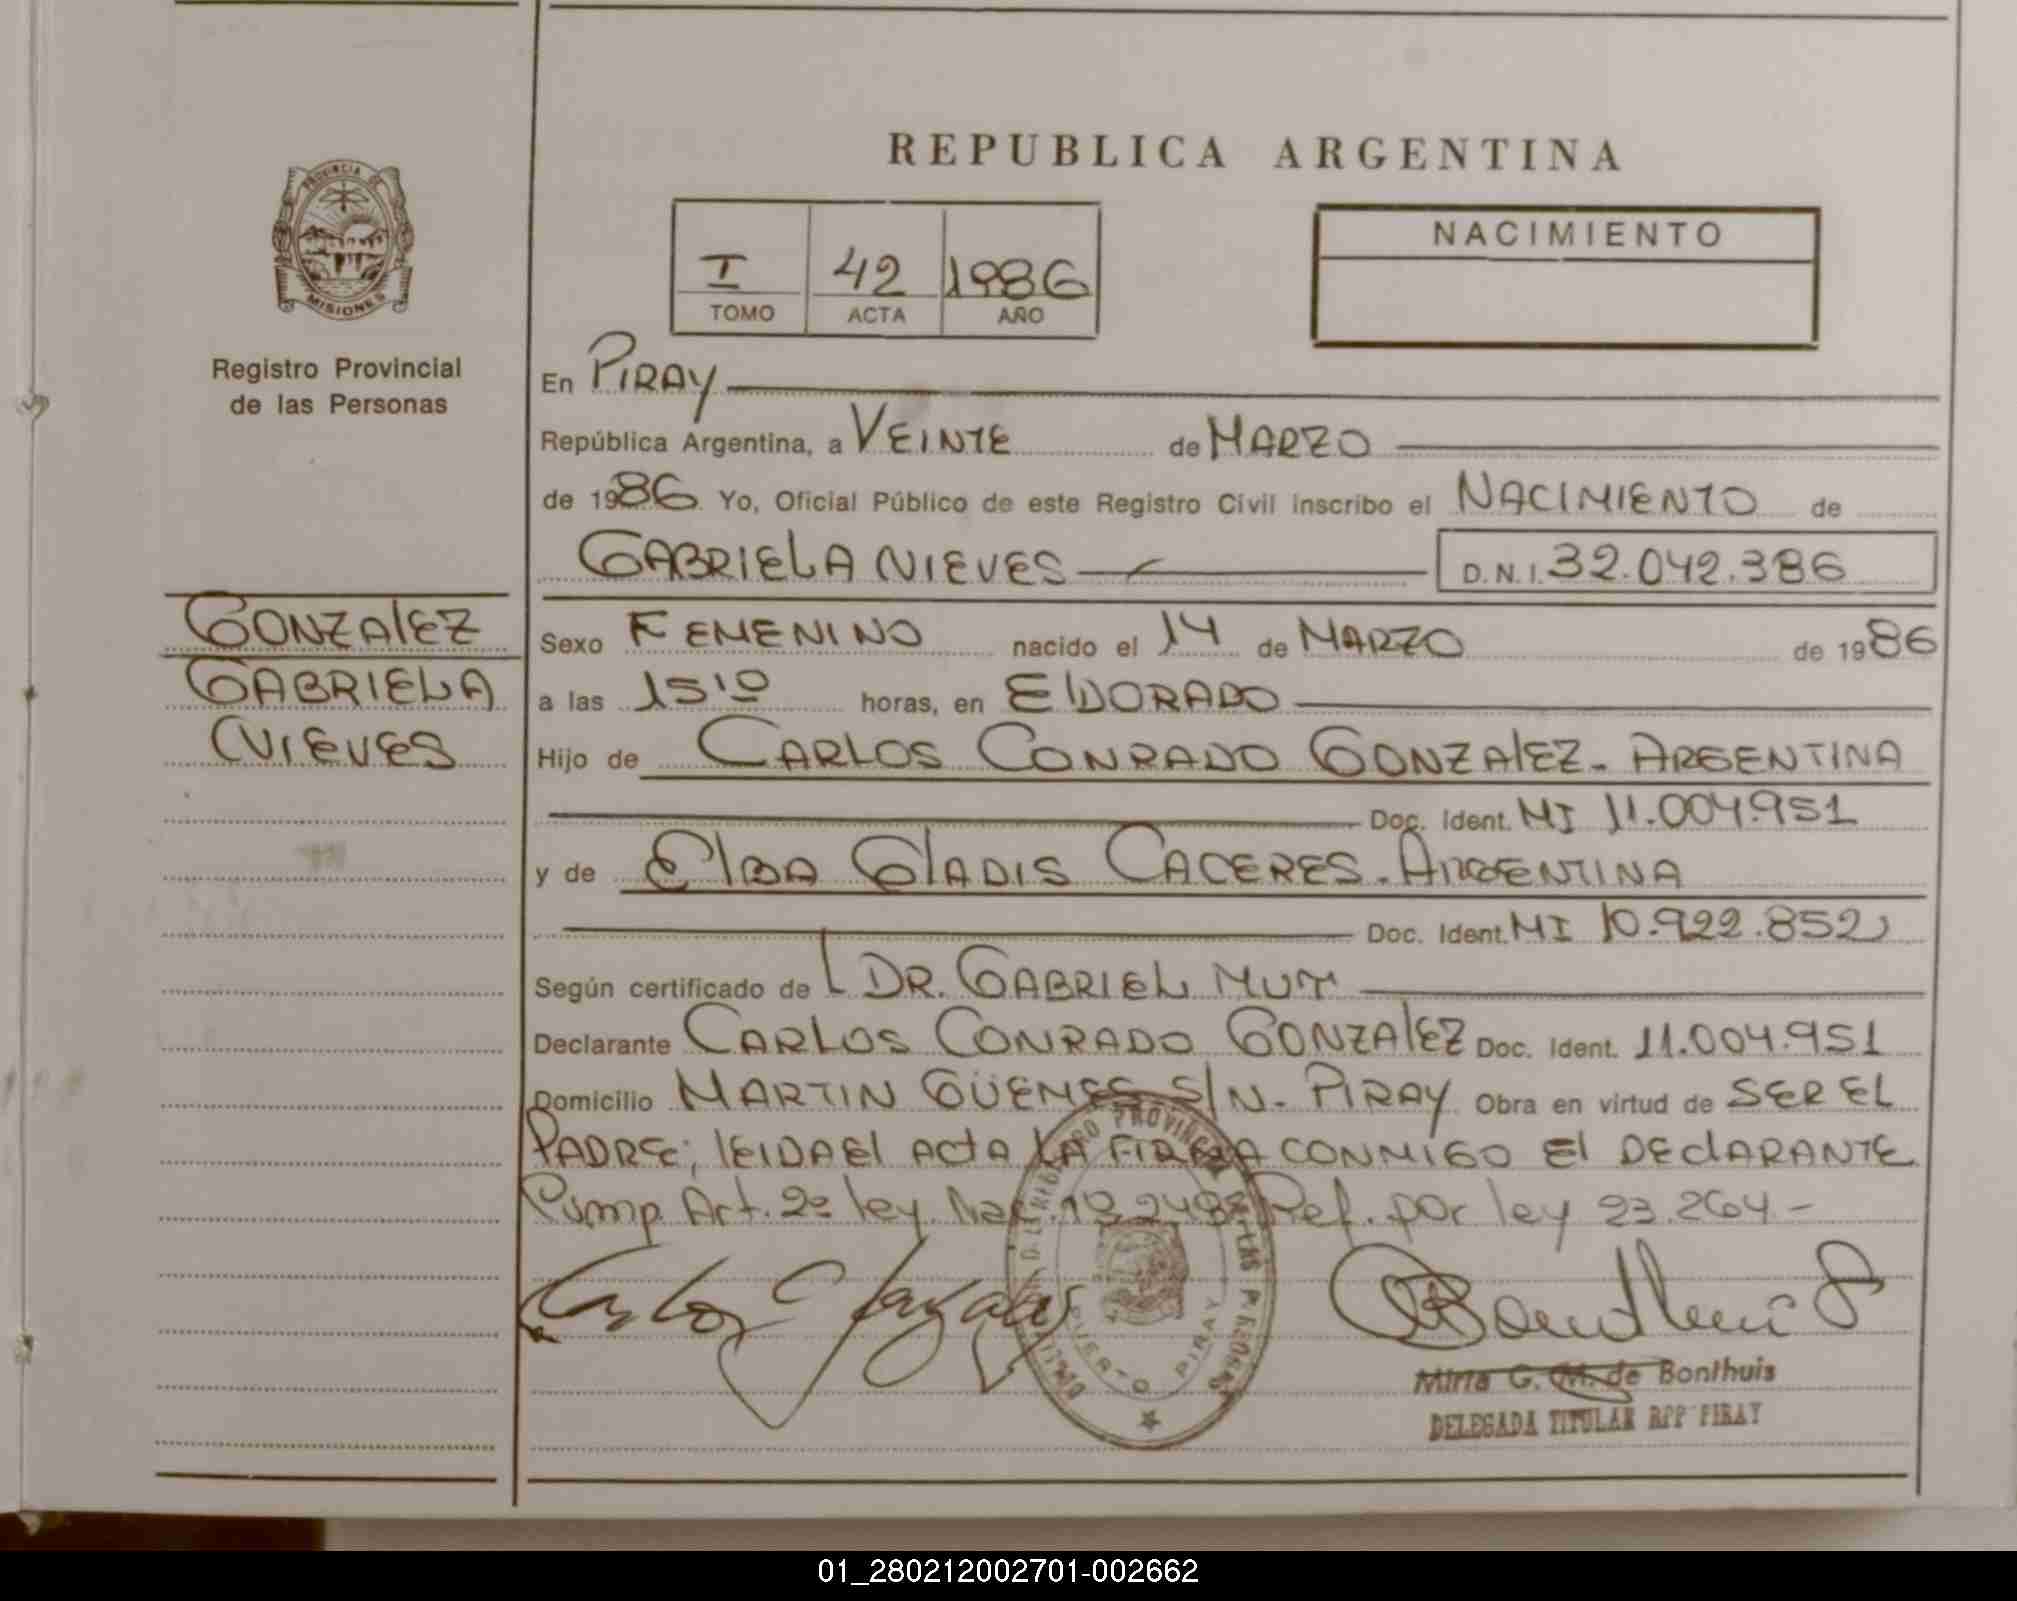 PROVINCIA DE
MISIONES
Registro Provincial
de las Personas
GONZALEZ
GABRIELA
NIEVES
REPUBLICA ARGENTINA
I 42 1986
TOMO ACTA AÑO
NACIMIENTO
En PIRAY
República Argentina, a VEINTE de MARZO
de 1986 Yo, Oficial Público de este Registro Civil inscribo el NACIMIENTO de
GABRIELA NIEVES D.N.I. 32.042.386
Sexo FEMENINO nacido el 14 de MARZO de 1986
a las 15'10 horas, en ELDORADO
Hijo de CARLOS CONRADO GONZALEZ - ARGENTINA
Doc. Ident. MI 11.004.951
y de ELBA GLADIS CACERES - ARGENTINA
Doc. Ident. MI 10.922.852
Según certificado de DR. GABRIEL MUT
Declarante CARLOS CONRADO GONZALEZ Doc. Ident. 11.004.951
Domicilio MARTIN GÜEMES S/N - PIRAY Obra en virtud de SER EL
PADRE; lEIDA El ActA LA FIRMA CONMIGO El DEClARANTE
Cump. Art. 2º ley Nac. Ref. por ley 23.264.-
PUERTO PIRAY
Mirta G. M. de Bonthuis
DELEGADA TITULAR RPP PIRAY
01_280212002701-002662